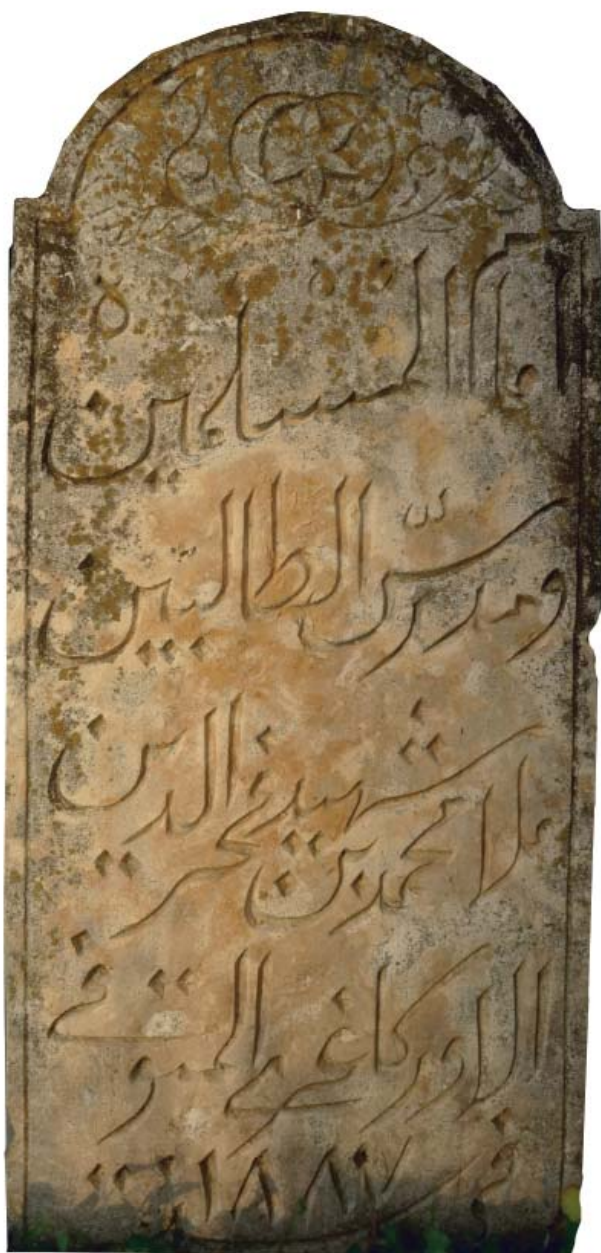 امام المسلمين
ومدرّس الطالبين
ملا محمد شهيد بن فخر الدين
الاوركاغري المتوفى
في ١٨٨٧